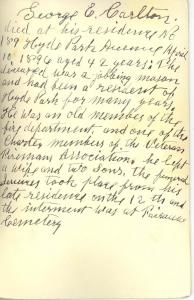 George E. Carlton.
died at his residence No
189 Hyde Park Avenue April
10, 1896 aged 42 years. The
deceased was a jobbing mason
and had been a resident of
Hyde Park for many years.
He was an old member of the
fire department, and one of the
Charter members of the Veteran
Firemans Association. he left
a wife and two Sons. the funeral
Services took place from his
late residence on the 12 th and
the interment was at
Cemetery